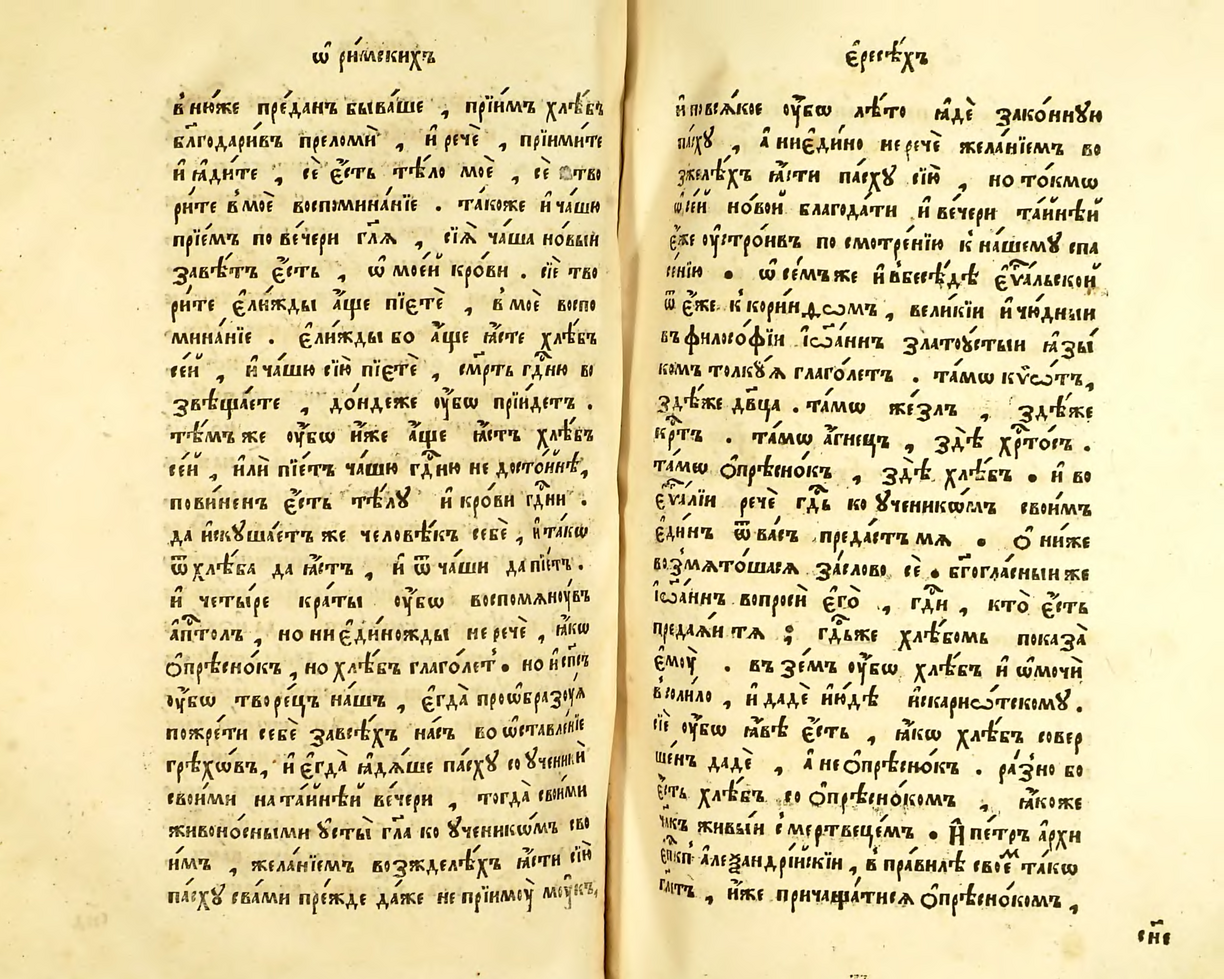 ѡ҆ ри́мскихъ
в̾ ню́же пре́данъ быва́ше , прїи́мъ хлѣ́бъ
бл҃годари́въ преломѝ , и҆ речѐ , прїими́те
и҆ ꙗ҆ди́те , сѐ є҆́сть тѣ́ло моѐ , сѐ тво
ри́те в̾ моѐ воспомина́нїе . та́коже и҆ ча́шю
прїе́мъ по ве́чери гл҃ѧ , сїѧ̀ ча́ша но́выи
завѣ́тъ є҆́сть , ѡ҆ мое́й кро́ви . сїѐ тво
ри́те є҆ли́жды а҆́ще пїетѐ , в̾ моѐ воспо
мина́нїе . є҆ли́жды бо а҆́ще ꙗ҆́сте хлѣ́бъ
се́й , и҆ ча́шю сїю̀ пїетѐ , см҃рть гдⷭ҇ню во
звѣща́ете , до́ндеже ᲂу҆́бѡ прїи́детъ .
тѣ́мъ же ᲂу҆́бѡ и҆́же а҆́ще ꙗ҆́стъ хлѣ́бъ
се́й , и҆лѝ пїе́тъ ча́шю гдⷭ҇ню не досто́йнѣ ,
пови́ненъ є҆́сть тѣ́лꙋ и҆ кро́ви гдⷭ҇ни .
да и҆скꙋша́етъ же человѣ́къ себѐ , и҆ та́кѡ
ѿ хлѣ́ба да ꙗ҆́стъ , и҆ ѿ ча́ши да пїе́тъ .
и҆ четы́ре кра́ты ᲂу҆́бѡ воспомѧнꙋ́въ
а҆пⷭ҇толъ , но ни є҆ди́ножды не речѐ , ꙗ҆́кѡ
ѻ҆прѣсно́къ , но хлѣ́бъ глаго́лет̾ . но и҆ сп҃съ
ᲂу҆́бѡ творе́цъ на́шъ , є҆гда̀ проѡ҆бразꙋ́ѧ
пожре́ти себѐ за всѣ́хъ на́съ во ѡ҆ставле́нїе
грѣхѡ́въ , и҆ є҆гда̀ ꙗ҆дѧ́ше па́схꙋ со ᲂу҆ченики̑
свои́ми на та́йнѣй ве́чери , тогда̀ свои́ми
живоно́сными ᲂу҆сты̀ гл҃а ко ᲂу҆ченикѡ́мъ сво
и́мъ , жела́нїемъ возжделѣ́хъ ꙗ҆́сти сїю̀
па́схꙋ с ва́ми пре́жде да́же не прїимꙋ̀ мꙋ́къ ,
є҆́ресѣхъ
и҆ по всѧ́кое ᲂу҆́бѡ лѣ́то ꙗ҆дѐ зако́ннꙋю
па́схꙋ , а҆ ни є҆ди́но не речѐ жела́нїемъ во
зжелѣ́хъ ꙗ҆́сти па́схꙋ сїю̀ , но то́кмѡ
ѡ҆ се́й но́вой благода́ти и҆ ве́чери та́йнѣй
є҆́же ᲂу҆стро́ивъ по смотре́нїю к̾ на́шемꙋ спа
се́нїю . ѡ҆ се́мъ же и҆ в̾ бесѣ́дѣ є҆ѵⷢ҇альской
ѿ є҆́же к̾ кори́нѳѡмъ , вели́кїи и҆ чю́дныи
въ филосо́фїи і҆ѡа́ннъ златоꙋ́стыи ꙗ҆зы́
комъ толкꙋ́ѧ глаго́летъ . та́мѡ кѵѡ́тъ ,
здѣ́же дв҃ца . та́мѡ же́злъ , здѣ́же
крⷭ҇тъ . та́мѡ а҆́гнецъ , здѣ̀ хрⷭ҇то́съ .
та́мѡ ѻ҆прѣсно́къ , здѣ̀ хлѣ́бъ . и҆ во
є҆ѵⷢ҇лїи речѐ гдⷭ҇ь ко ᲂу҆ченикѡ́мъ свои́мъ
є҆ди́нъ ѿ ва́съ преда́стъ мѧ . ѻ҆ ни́же
возмѧто́шасѧ за сло́во сѐ . бг҃огла́сныи же
і҆ѡа́ннъ вопросѝ є҆го̀ , гдⷭ҇и , кто̀ є҆́сть
преда́ѧи тѧ ; гдⷭ҇ь же хлѣ́бомь показа̀
є҆мꙋ̀ . въ зе́мъ ᲂу҆́бѡ хлѣ́бъ и҆ ѡ҆мочѝ
в̾ соли́ло , и҆ дадѐ и҆ю́дѣ и҆скарїѡ́тскомꙋ .
сїѐ ᲂу҆́бѡ ꙗ҆́вѣ є҆́сть , ꙗ҆́кѡ хлѣ́бъ совер
ше́нъ дадѐ , а҆ не ѻ҆прѣсно́къ . ра́зно бо
є҆́сть хлѣ́бъ со ѻ҆прѣсно́комъ , ꙗ҆́коже
живы́и с̾ мертвеце́мъ . И҆ пе́тръ а҆рхи
є҆пⷭ҇кпъ а҆леѯандрі́йскїи , в̾ пра́вилѣ свое́мⷨ та́кѡ
гл҃етъ , и҆́же причаща́тисѧ ѻ҆прѣсно́комъ ,
сн҃е